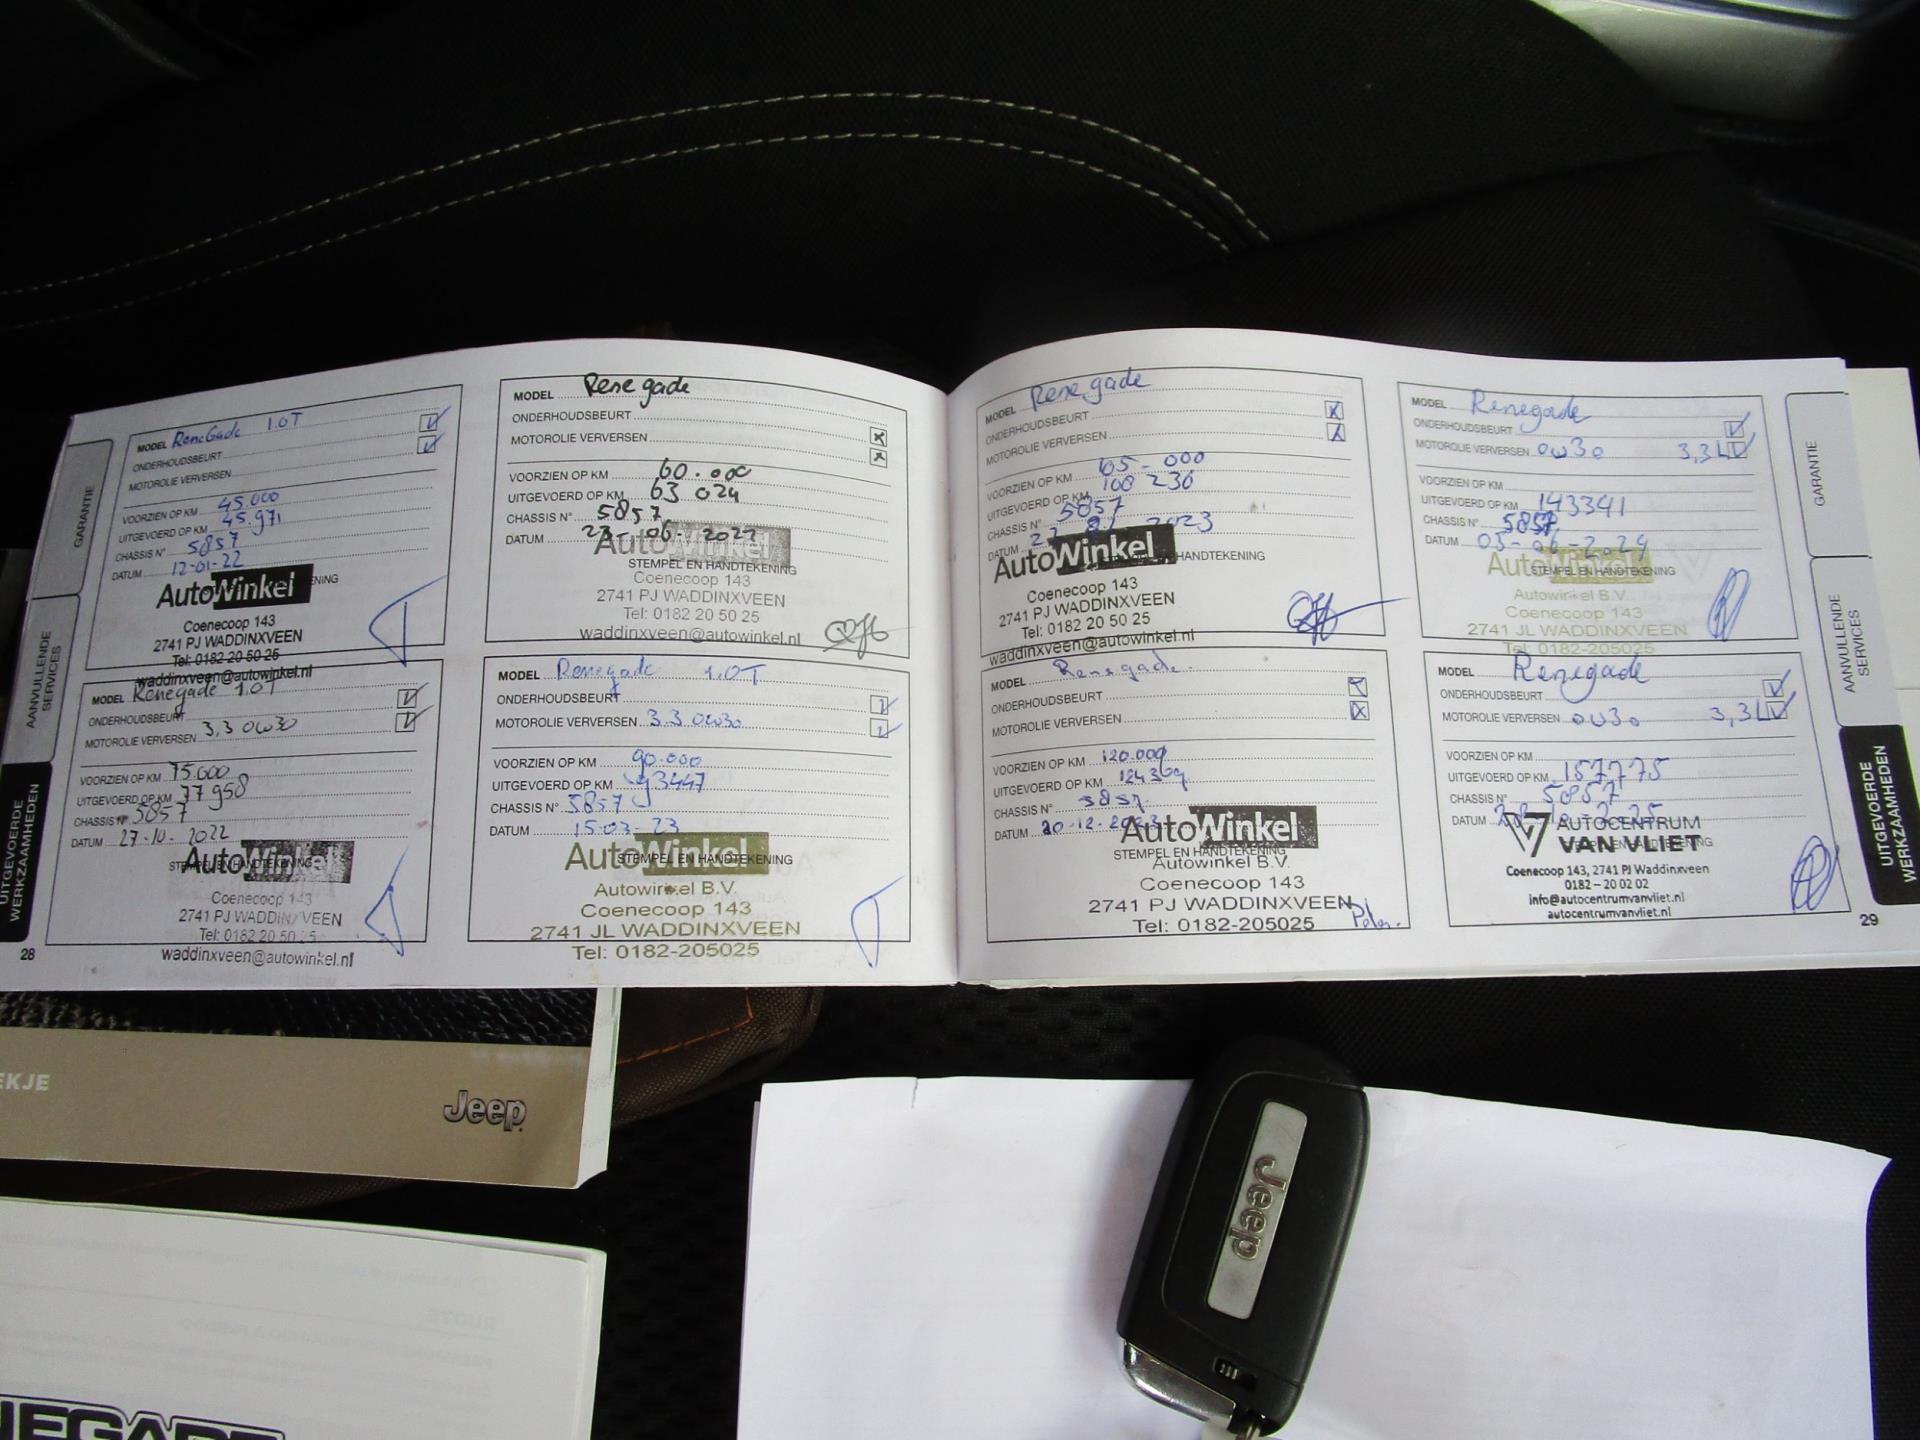 GARANTIE
AANVULLENDE
SERVICES
UITGEVOERDE
WERKZAAMHEDEN
28
MODEL ReneGade 1.0T
ONDERHOUDSBEURT
MOTOROLIE VERVERSEN
VOORZIEN OP KM 45.000
UITGEVOERD OP KM 45.971
CHASSIS N° 5857
DATUM 12-01-22
AutoWinkel
Coenecoop 143
2741 PJ WADDINXVEEN
Tel: 0182 20 50 25
waddinxveen@autowinkel.nl
MODEL Renegade
ONDERHOUDSBEURT
MOTOROLIE VERVERSEN
VOORZIEN OP KM 60.000
UITGEVOERD OP KM 63 024
CHASSIS N° 5857
DATUM 23-06-2022
AutoWinkel
STEMPEL EN HANDTEKENING
Coenecoop 143
2741 PJ WADDINXVEEN
Tel: 0182 20 50 25
waddinxveen@autowinkel.nl
MODEL Renegade 1.0T
ONDERHOUDSBEURT
MOTOROLIE VERVERSEN 3,3 0W30
VOORZIEN OP KM 75.000
UITGEVOERD OP KM 77958
CHASSIS N° 5857
DATUM 27-10-2022
AutoWinkel
STEMPEL EN HANDTEKENING
Coenecoop 143
2741 PJ WADDINXVEEN
Tel: 0182 20 50 25
waddinxveen@autowinkel.nl
MODEL Renegade 1.0T
ONDERHOUDSBEURT
MOTOROLIE VERVERSEN 3.3 0W30
VOORZIEN OP KM 90.000
UITGEVOERD OP KM 93447
CHASSIS N° 5857
DATUM 15-03-23
AutoWinkel
STEMPEL EN HANDTEKENING
Autowinkel B.V.
Coenecoop 143
2741 JL WADDINXVEEN
Tel: 0182-205025
MODEL Renegade
ONDERHOUDSBEURT
MOTOROLIE VERVERSEN
VOORZIEN OP KM 105-000
UITGEVOERD OP KM 108 236
CHASSIS N° 5857
DATUM 2023
AutoWinkel
EN HANDTEKENING
Coenecoop 143
2741 PJ WADDINXVEEN
Tel: 0182 20 50 25
waddinxveen@autowinkel.nl
MODEL Renegade
ONDERHOUDSBEURT
MOTOROLIE VERVERSEN 0W30 3,3L
VOORZIEN OP KM
UITGEVOERD OP KM 143341
CHASSIS N° 5857
DATUM 03-06-2024
AutoWinkel
STEMPEL EN HANDTEKENING
Autowinkel B.V.
Coenecoop 143
2741 JL WADDINXVEEN
Tel: 0182-205025
MODEL Renegade
ONDERHOUDSBEURT
MOTOROLIE VERVERSEN
VOORZIEN OP KM 120.000
UITGEVOERD OP KM 124369
CHASSIS N° 5857
DATUM 20-12-2023
AutoWinkel
STEMPEL EN HANDTEKENING
Autowinkel B.V.
Coenecoop 143
2741 PJ WADDINXVEEN
Tel: 0182-205025
MODEL Renegade
ONDERHOUDSBEURT
MOTOROLIE VERVERSEN 0W30 3,3L
VOORZIEN OP KM
UITGEVOERD OP KM 157775
CHASSIS N° 5857
DATUM 2025
AUTOCENTRUM
VAN VLIET
Coenecoop 143, 2741 PJ Waddinxveen
0182 – 20 02 02
info@autocentrumvanvliet.nl
autocentrumvanvliet.nl
GARANTIE
AANVULLENDE
SERVICES
UITGEVOERDE
WERKZAAMHEDEN
29
EKJE
Jeep
Jeep
NEGADE